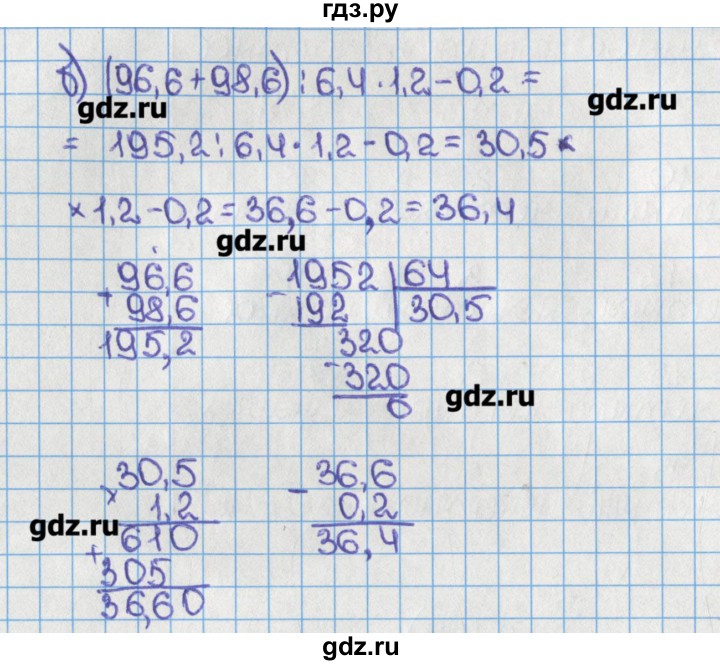 гдз.ру
б) (96,6+98,6):6,4·1,2-0,2=
gdz.ru
gdz.ru
= 195,2:6,4·1,2-0,2=30,5×
×1,2-0,2=36,6-0,2=36,4
gdz.ru
+ 96,6
98,6
195,2
- 1952 | 64
192 | 30,5
320
- 320
0
gdz.ru
× 30,5
1,2
gdz.ru
610
+ 305
36,60
- 36,6
0,2
36,4
gdz.ru